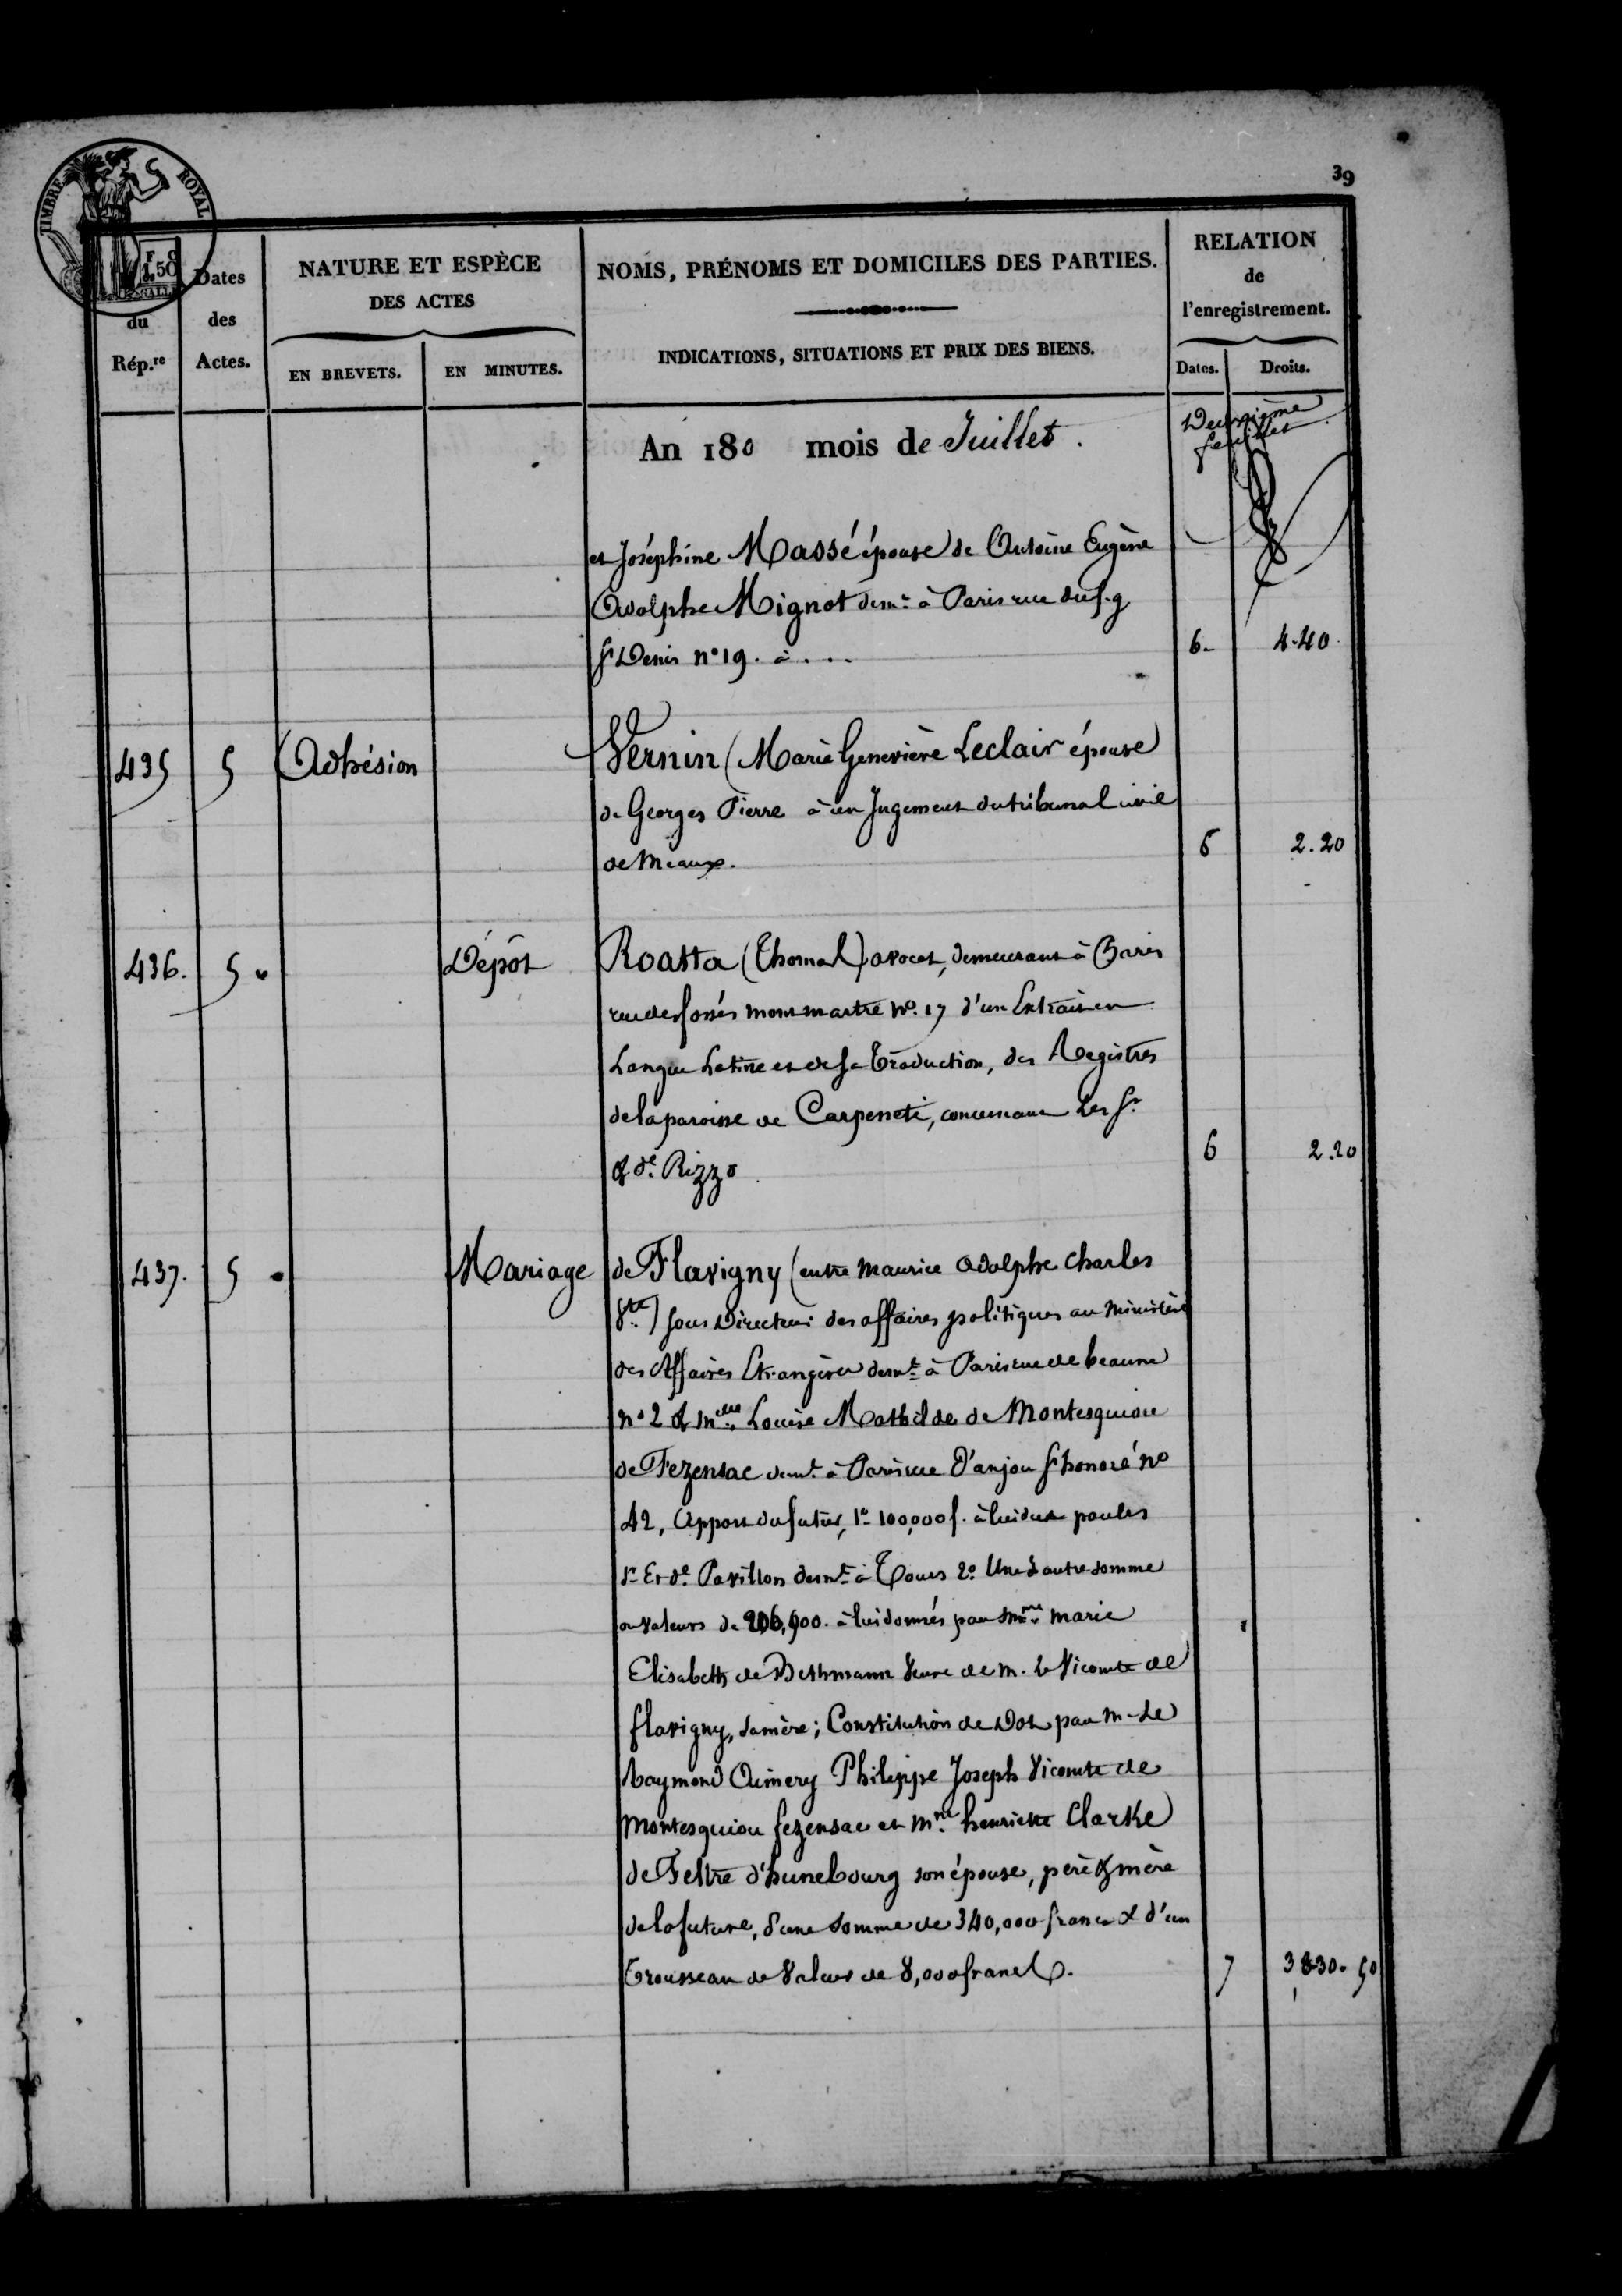 39
TIMBRE ROYAL
du
Rép.re
Dates
des
Actes.
NATURE ET ESPÈCE
DES ACTES
EN BREVETS.
EN MINUTES.
NOMS, PRÉNOMS ET DOMICILES DES PARTIES.
INDICATIONS, SITUATIONS ET PRIX DES BIENS.
RELATION
de
l'enregistrement.
Dates.
Droits.
An 180 mois de Juillet.
Deuxième
feuillet
et Joséphine Massé épouse de Antoine Eugène
Adolphe Mignot demt à Paris rue du f.g
St Denis n° 19. à . . . 6. 4.40
435 5 Adhésion Vernin (Marie Geneviève Leclair épouse
de Georges Pierre à un Jugement du tribunal civil
de Meaux. 6 2.20
436. 5 " Dépôt Roatta (Thomas) avocat, demeurant à Paris
rue des fossés montmartre n°. 17 d'un Extrait en
Langue Latine et de sa Traduction, des Registres
de la paroisse de Carpeneti, concernant les Sr
& de. Rizzo 6 2.20
437. 5 " Mariage de Flavigny (entre Maurice Adolphe Charles
Vte) sous Directeur des affaires politiques au Ministère
des Affaires Etrangères demt à Paris rue de beaune
n° 2 & Mlle Louise Mathilde de Montesquiou
de Fezensac demt à Paris rue D'anjou St honoré n°
42, Apport du futur, 1° 100,000 f. à lui dus par les
Sr Et de Pavillon demt à Tours 2° Une autre somme
ou valeurs de 206,900. à lui donnés par Mme Marie
Elisabeth de Bethmann Veuve de M. le Vicomte de
flavigny, sa mère; Constitution de Dot par M. Le
Raymond Aimery Philippe Joseph Vicomte de
Montesquiou fezensac et Mme henriette Clarke
de Feltre d'hunebourg son épouse, père & mère
de la future, d'une Somme de 340,000 francs & d'un
Trousseau de Valeur de 8,000 francs. 7 3830.50